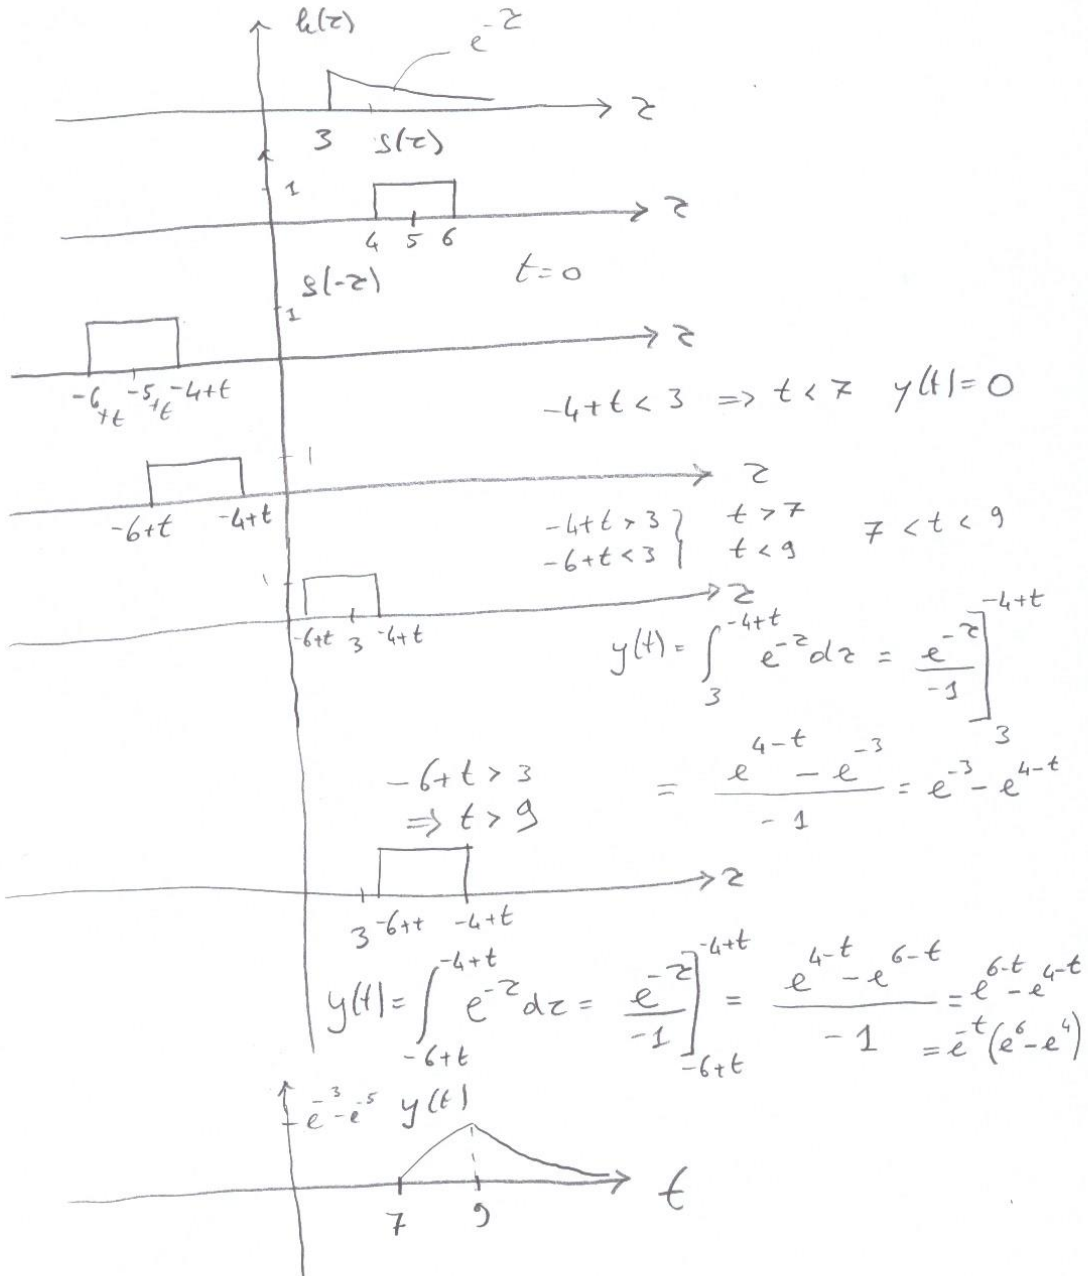 h(τ)
e^{-τ}
τ
3
s(τ)
1
τ
4 5 6
s(-τ)
t=0
1
τ
-6+t -5+t -4+t
-4+t < 3 => t < 7 y(t) = 0
1
τ
-6+t -4+t
-4+t > 3 } t > 7
-6+t < 3 } t < 9
7 < t < 9
1
τ
-6+t 3 -4+t
y(t) = ∫_{3}^{-4+t} e^{-τ} dτ = e^{-τ}/-1 ]_{3}^{-4+t}
= (e^{4-t} - e^{-3})/-1 = e^{-3} - e^{4-t}
-6+t > 3
=> t > 9
τ
3 -6+t -4+t
y(t) = ∫_{-6+t}^{-4+t} e^{-τ} dτ = e^{-τ}/-1 ]_{-6+t}^{-4+t} = (e^{4-t} - e^{6-t})/-1 = e^{6-t} - e^{4-t}
= e^{-t}(e^{6} - e^{4})
e^{-3} - e^{-5} y(t)
t
7 9